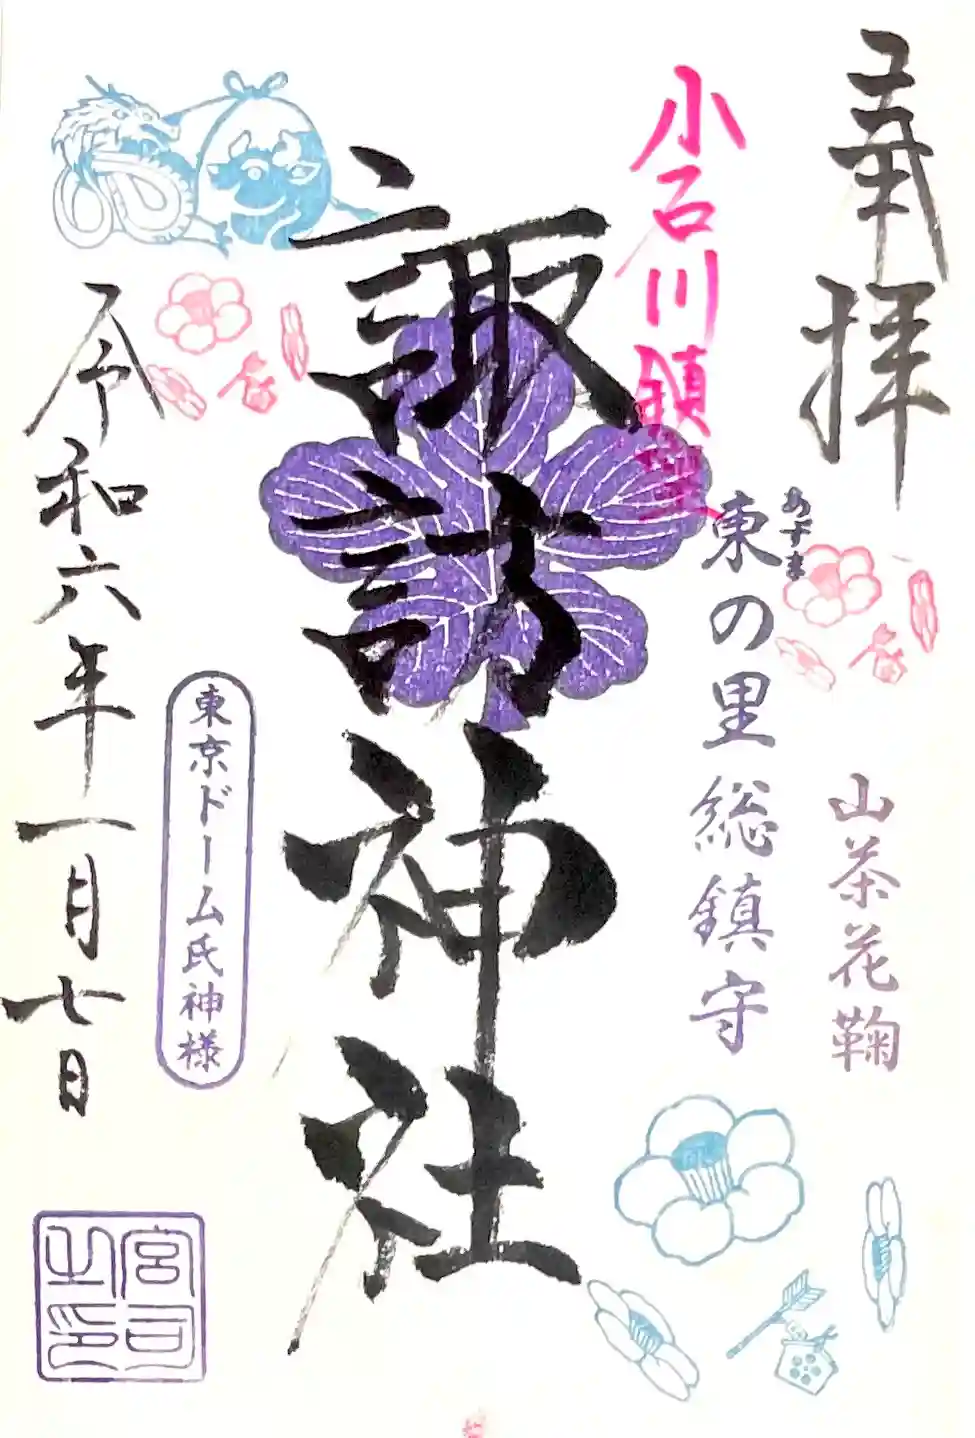 奉拝
小石川鎮
東の里総鎮守
あずま
山茶花鞠
諏訪神社
東京ドーム氏神様
令和六年一月七日
宮司之印